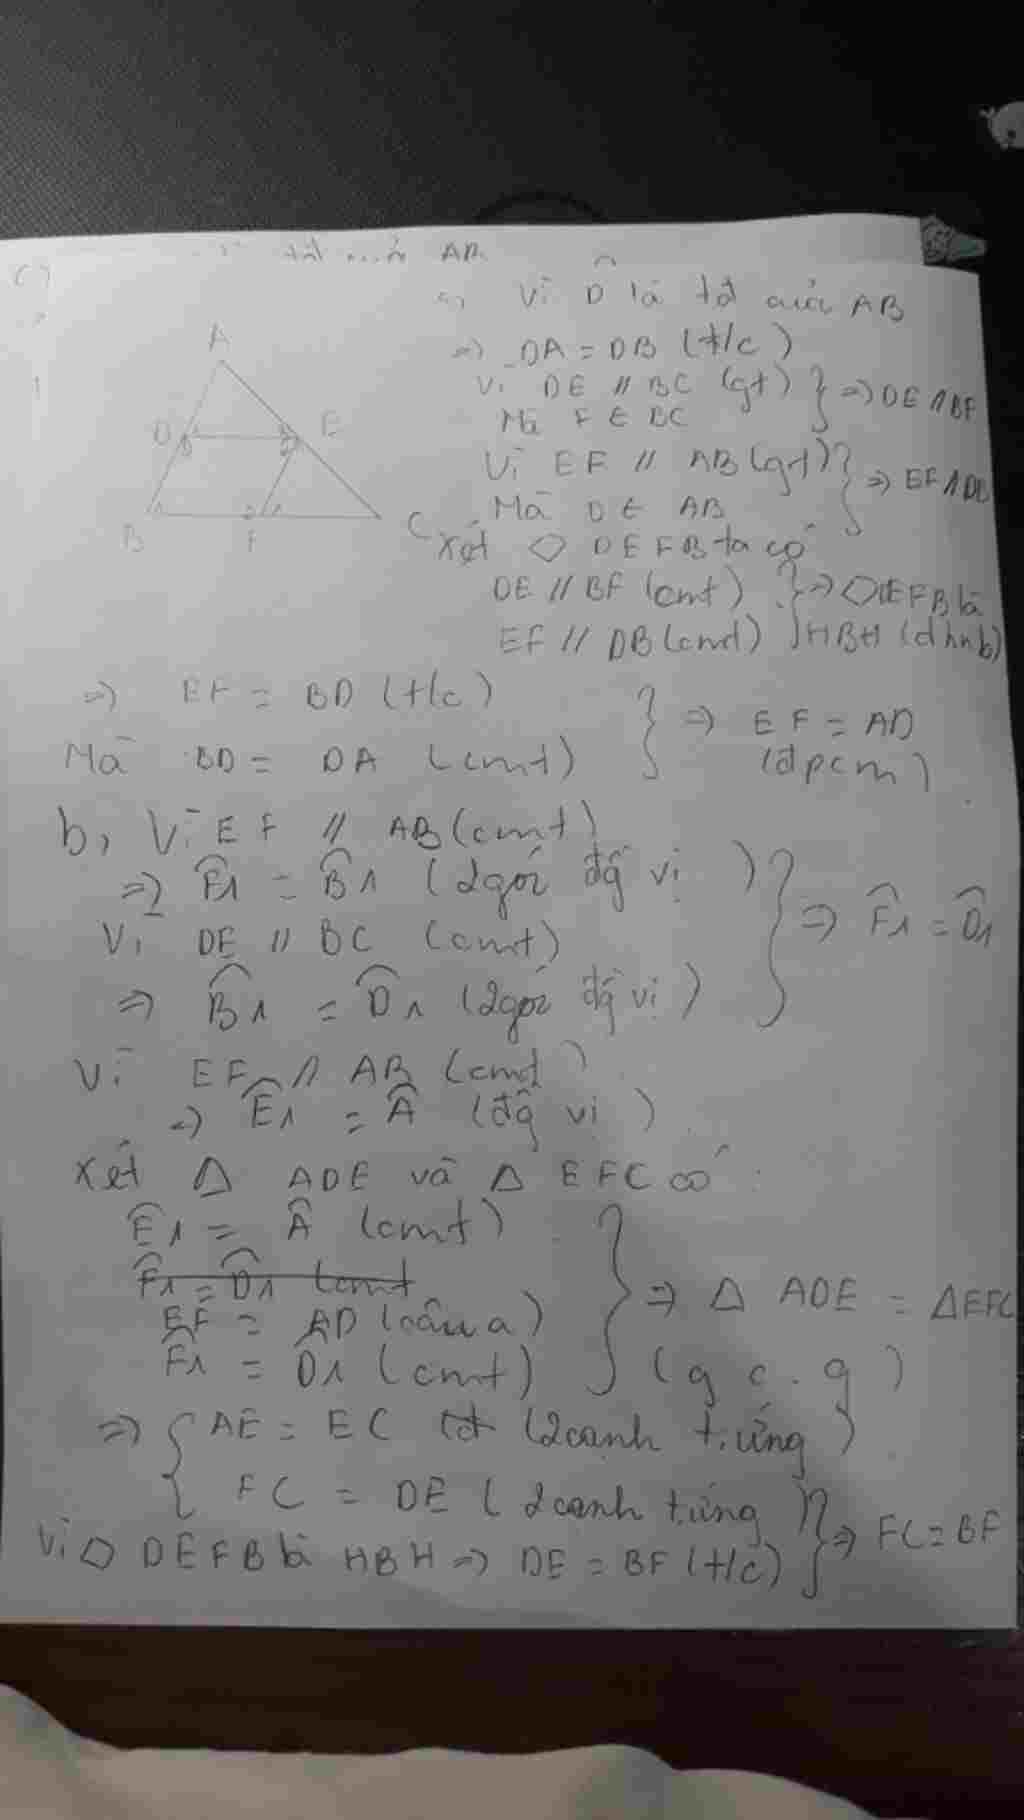 AB
a, Vì D là tđ của AB
A
=> DA = DB (t/c)
Vì DE // BC (gt)
Mà F ∈ BC
=> DE // BF
D E
Vì EF // AB (gt)
Mà D ∈ AB
=> EF // DB
B F C
Xét ◇ DEFB ta có
DE // BF (cmt)
EF // DB (cmt)
=> ◇DEFB là
HBH (dhnb)
=> EF = BD (t/c)
Mà BD = DA (cmt)
=> EF = AD
(đpcm)
b, Vì EF // AB (cmt)
=> F̂1 = B̂1 (2 góc đg̀ vị)
Vì DE // BC (cmt)
=> B̂1 = D̂1 (2 góc đg̀ vị)
=> F̂1 = D̂1
Vì EF // AB (cmt)
=> Ê1 = Â (đg̀ vị)
Xét Δ ADE và Δ EFC có :
Ê1 = Â (cmt)
F̂1 = D̂1 (cmt
EF = AD (câu a)
F̂1 = D̂1 (cmt)
=> Δ ADE = ΔEFC
(g c . g)
=> AE = EC (2 cạnh t.ứng)
FC = DE (2 cạnh t.ứng)
Vì ◇ DEFB là HBH => DE = BF (t/c)
=> FC = BF